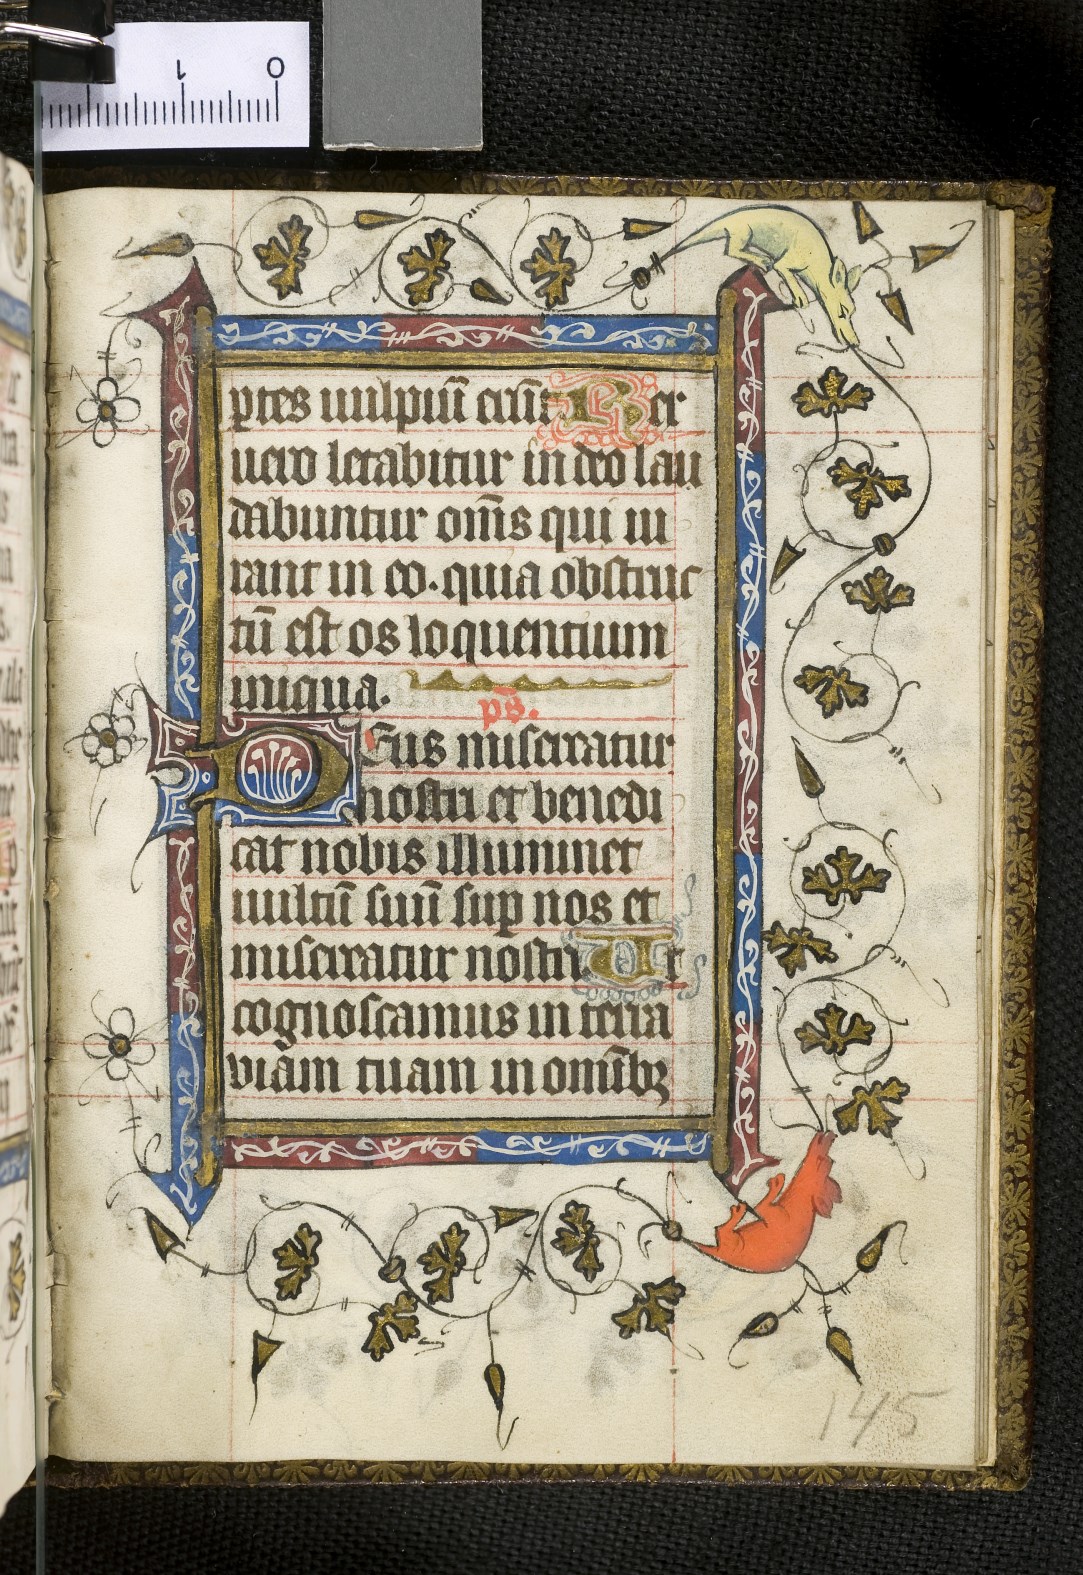 1 0
ptes uulpiū erūt Rex
uero letabitur in deo lau
dabuntur om̄s qui iu
rant in eo. quia obstruc
tū est os loquentium
iniqua.
ps̄.
Deus misereatur
nostri et benedi
cat nobis illuminet
uultū suū sup nos et
misereatur nostri. Ut
cognoscamus in terra
viam tuam in om̄ibꝫ
145